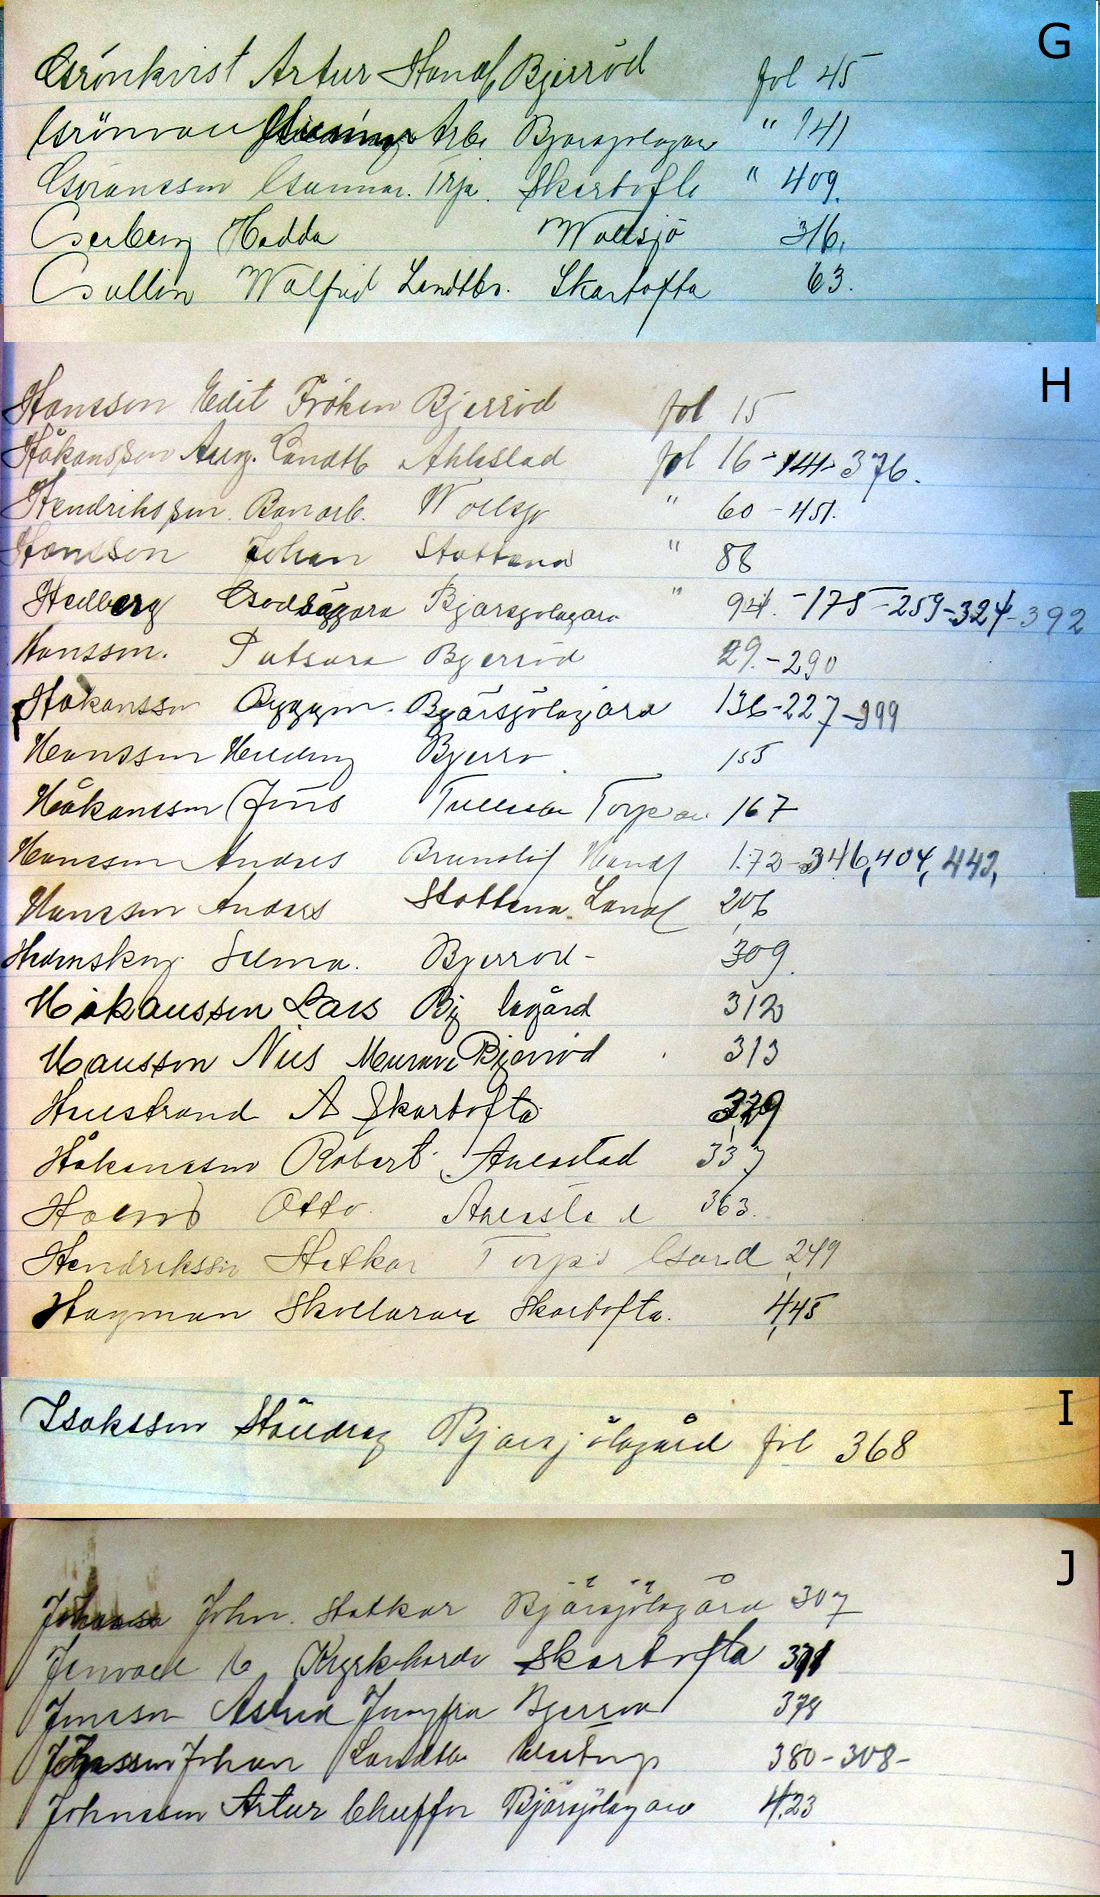 G
Grönkvist Artur Handl Bjerröd fol 45
Grönvall Arb. Bjärsjölagår " 141
Göransson Gunnar. Trp. Skartofta " 409.
Cederberg Hedda Wollsjö 316.
Gullin Walfrid Landtbr. Skartofta 63.
H
Hansson Edit Fröken Bjerröd fol 15
Håkansson Aug. Landtb Ahlestad fol 16-141-376.
Hendriksson Banarb. Wollsjö " 60-451.
Hansson Johan Stattena " 88
Hedberg Godsägare Bjärsjölagård " 94.-175-259-324-392
Hansson. Putsare Bjerröd 29.-290
Håkansson Byggm. Bjärsjölagård 136-227-399
Hansson Bjerrö 155
Håkansson Jöns Tullesbo Torpare 167
Hansson Anders Brunslöf Handl 172-346,404,442,
Hansson Anders Stattena Landt 206
Selma. Bjerröd- 309.
Håkansson Lars Bj lagård 312
Hansson Nils Murare Bjerröd 313
Hallstrand A Skartofta 329
Håkansson Robert Ahlestad 337
Holm Otto. Ahlestad 363.
Hendriksson Statkar Torps Gård 249
Hagman Skollärare Skartofta. 445
I
Isaksson Ståldrag Bjärsjölagård fol 368
J
John. Statkar Bjärsjölagård 307
Kyrkoherde Skartofta 371
Jönsson Astrid Jungfru Bjerröd 378
Johan Landtb 380-308-
Johnsson Artur Chufför Bjärsjölagård 423